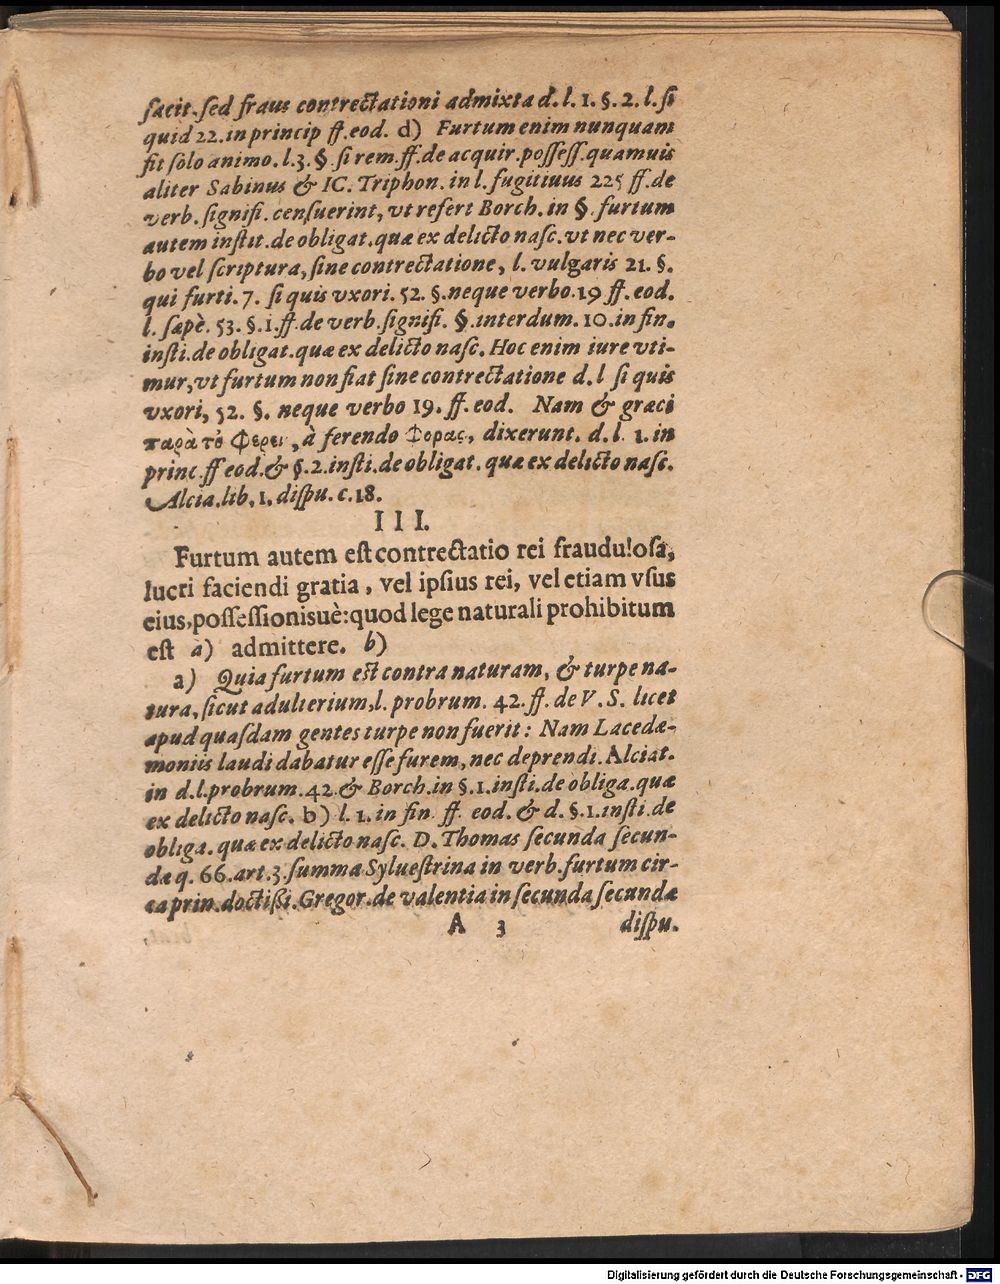 facit. sed fraus contrectationi admixta d. l. 1. §. 2. l. si
quid 22. in princip ff. eod. d) Furtum enim nunquam
fit solo animo. l. 3. §. si rem. ff. de acquir. possess. quamuis
aliter Sabinus & IC. Triphon. in l. fugitiuus 225 ff. de
verb. signifi. censuerint, vt refert Borch. in §. furtum
autem instit. de obligat. quæ ex delicto nasc. vt nec ver-
bo vel scriptura, sine contrectatione, l. vulgaris 21. §.
qui furti. 7. si quis vxori. 52. §. neque verbo. 19 ff. eod.
l. sæpè. 53. §. 1. ff. de verb. signifi. §. interdum. 10. in fin.
insti. de obligat. quæ ex delicto nasc. Hoc enim iure vti-
mur, vt furtum non fiat sine contrectatione d. l si quis
vxori, 52. §. neque verbo 19. ff. eod. Nam & græci
παρὰ τὸ Φερει, à ferendo Φορας, dixerunt. d. l. 1. in
princ. ff eod. & §. 2. insti. de obligat. quæ ex delicto nasc.
Alcia. lib. 1. dispu. c. 18.
III.
Furtum autem est contrectatio rei fraudulosa,
lucri faciendi gratia, vel ipsius rei, vel etiam vsus
eius, possessionisuè: quod lege naturali prohibitum
est a) admittere. b)
a) Quia furtum est contra naturam, & turpe na-
tura, sicut adulterium, l. probrum. 42. ff. de V. S. licet
apud quasdam gentes turpe non fuerit: Nam Lacedæ-
moniis laudi dabatur esse furem, nec deprendi. Alciat.
in d. l. probrum. 42. & Borch. in §. 1. insti. de obliga. quæ
ex delicto nasc. b) l. 1. in fin ff. eod. & d. §. 1. insti. de
obliga. quæ ex delicto nasc. D. Thomas secunda secun-
dæ q. 66. art. 3. summa Syluestrina in verb. furtum cir-
ca prin. doctiss. Gregor. de valentia in secunda secundæ
A 3 dispu.
Digitalisierung gefördert durch die Deutsche Forschungsgemeinschaft - DFG